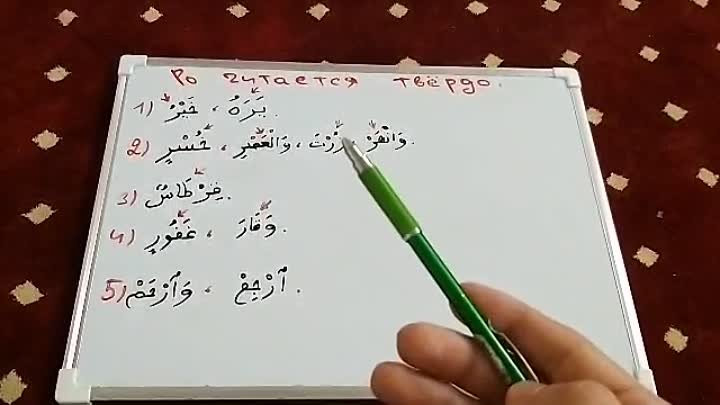 Ро читается твёрдо.
1) يَرَهُ ، خَيْرُ .
2) وَانْحَرْ ، زُرْتَ ، وَالْعَصْرِ ، خُسْرٍ .
3) قِرْطَاسٌ .
4) وَقَارَ ، غَفُورٍ .
5) ٱرْجِعْ ، وَٱرْحَمْ .